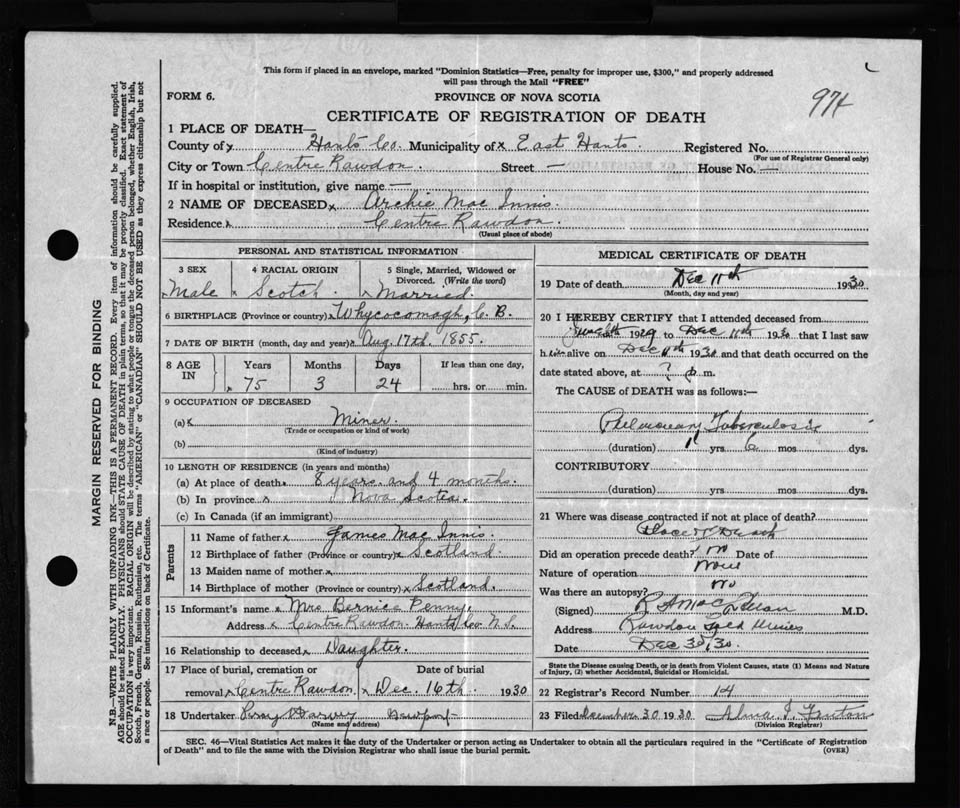 This form if placed in an envelope, marked "Dominion Statistics—Free, penalty for improper use, $300," and properly addressed
will pass through the Mail "FREE"
FORM 6.
PROVINCE OF NOVA SCOTIA
974
CERTIFICATE OF REGISTRATION OF DEATH
1 PLACE OF DEATH—
County of Hants Co. Municipality of East Hants. Registered No.
(For use of Registrar General only)
City or Town Centre Rawdon. Street — House No. —
If in hospital or institution, give name —
2 NAME OF DECEASED Archie Mac Innis.
Residence Centre Rawdon.
(Usual place of abode)
PERSONAL AND STATISTICAL INFORMATION
3 SEX 4 RACIAL ORIGIN 5 Single, Married, Widowed or
Divorced. (Write the word)
Male Scotch Married.
6 BIRTHPLACE (Province or country) Whycocomagh, C. B.
7 DATE OF BIRTH (month, day and year) Aug. 17th. 1855.
8 AGE IN Years Months Days If less than one day,
75 3 24 hrs. or min.
9 OCCUPATION OF DECEASED
(a) Miner.
(Trade or occupation or kind of work)
(b)
(Kind of industry)
10 LENGTH OF RESIDENCE (in years and months)
(a) At place of death 8 years and 4 months.
(b) In province Nova Scotia.
(c) In Canada (if an immigrant)
Parents
11 Name of father James Mac Innis.
12 Birthplace of father (Province or country) Scotland.
13 Maiden name of mother
14 Birthplace of mother (Province or country) Scotland.
15 Informant's name Mrs Bernice Penny.
Address Centre Rawdon. Hants Co. N.S.
16 Relationship to deceased Daughter.
17 Place of burial, cremation or Date of burial
removal Centre Rawdon Dec. 16th. 1930
18 Undertaker Harvey Newport
(Name and address)
MEDICAL CERTIFICATE OF DEATH
19 Date of death Dec 11th 1930
(Month, day and year)
20 I HEREBY CERTIFY that I attended deceased from
1929 to Dec 11th 1930 that I last saw
h im alive on Dec 11th 1930 and that death occurred on the
date stated above, at ? p. m.
The CAUSE of DEATH was as follows:—
Pulmonary Tuberculosis
(duration) 1 yrs 6 mos. dys.
CONTRIBUTORY
(duration) yrs. mos. dys.
21 Where was disease contracted if not at place of death?
Place of Death
Did an operation precede death? no Date of
Nature of operation None
Was there an autopsy? no
(Signed) M.D.
Address Rawdon Gold Mines
Date Dec 30/30
State the Disease causing Death, or in death from Violent Causes, state (1) Means and Nature
of Injury, (2) whether Accidental, Suicidal or Homicidal.
22 Registrar's Record Number 14
23 Filed December 30 1930 Alma J. Fenton
(Division Registrar)
SEC. 46—Vital Statistics Act makes it the duty of the Undertaker or person acting as Undertaker to obtain all the particulars required in the "Certificate of Registration
of Death" and to file the same with the Division Registrar who shall issue the burial permit.
(OVER)
MARGIN RESERVED FOR BINDING
N.B.—WRITE PLAINLY WITH UNFADING INK—THIS IS A PERMANENT RECORD. Every item of information should be carefully supplied.
AGE should be stated EXACTLY. PHYSICIANS should STATE CAUSE OF DEATH in plain terms, so that it may be properly classified. Exact statement of
OCCUPATION is very important. RACIAL ORIGIN will be described by stating to what people or tongue the deceased person belonged, whether English, Irish,
Scotch, French, German, Russian, Ruthenian, etc. The terms "AMERICAN" or "CANADIAN" SHOULD NOT BE USED as they express citizenship but not
a race or people. See instructions on back of Certificate.